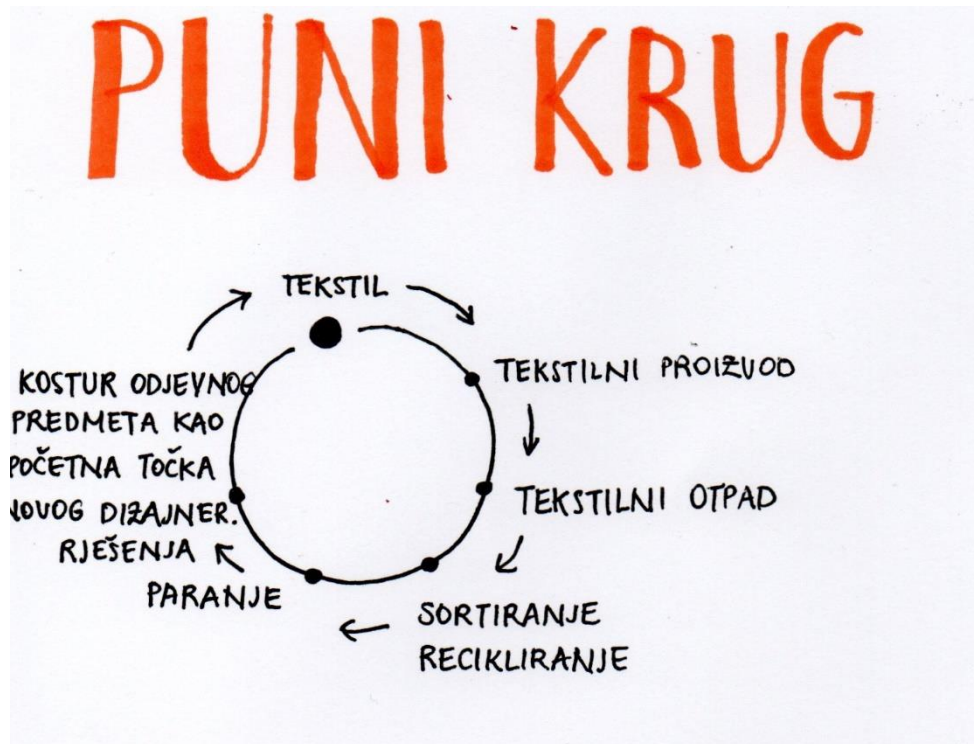 PUNI KRUG
TEKSTIL
TEKSTILNI PROIZVOD
TEKSTILNI OTPAD
SORTIRANJE
RECIKLIRANJE
PARANJE
KOSTUR ODJEVNOG
PREDMETA KAO
POČETNA TOČKA
NOVOG DIZAJNER.
RJEŠENJA